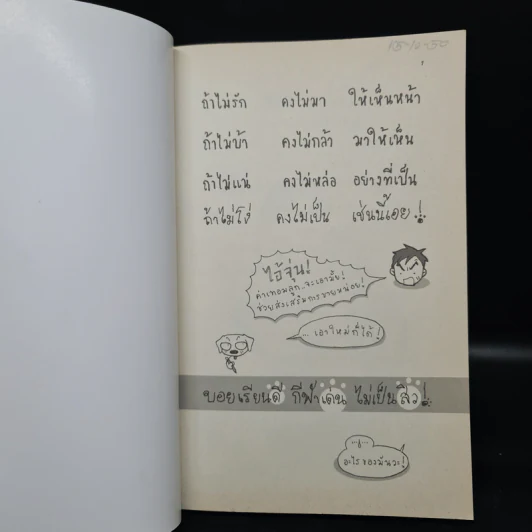 15-10-50
ถ้าไม่รัก คงไม่มา ให้เห็นหน้า
ถ้าไม่บ้า คงไม่กล้า มาให้เห็น
ถ้าไม่แน่ คงไม่หล่อ อย่างที่เป็น
ถ้าไม่โง่ คงไม่เป็น เช่นนี้เอย!
ไอ้จุ่น!
ค่าเทอมลูก..จะเอามั้ย!
ช่วยส่งเสริมการขายหน่อย!
...เอาใหม่ก็ได้!
บอยเรียนดี กีฬาเด่น ไม่เป็นสิว!
อะไรของมันวะ!